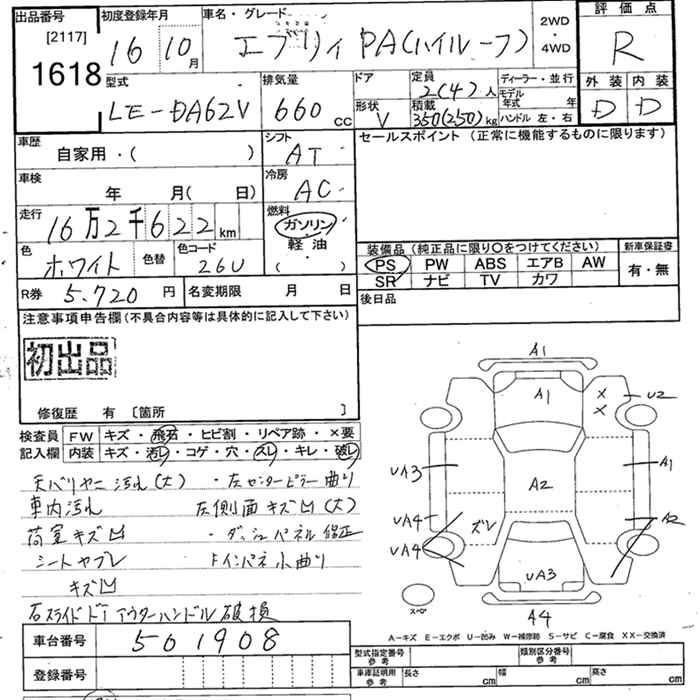 出品番号 [2117] 1618
初度登録年月 16 10月
車名・グレード エブリィ PA(ハイルーフ)
2WD・4WD
評価点 R
外装 内装
D D
型式 LE-DA62V
排気量 660 cc
ドア
形状 V
定員 2(4)人
積載 350(250)kg
ディーラー・並行
モデル年式 年
ハンドル 左・右
車歴 自家用・( )
シフト AT
セールスポイント (正常に機能するものに限ります)
車検 年 月( 日)
冷房 AC
走行 16万2千622km
燃料 ガソリン・軽油・( )
色 ホワイト 色替
色コード 26U
装備品 (純正品に限り○をつけてください)
新車保証書
PS PW ABS エアB AW
有・無
SR ナビ TV カワ
R券 5.720円
名変期限 月 日
後日品
注意事項申告欄(不具合内容等は具体的に記入して下さい)
初出品
修復歴 有 〔箇所 〕
検査員記入欄
FW キズ・飛石・ヒビ割・リペア跡・×要
内装 キズ・汚レ・コゲ・穴・スレ・キレ・破レ
天バリヤニ汚れ(大) ・左センターピラー曲り
車内汚れ 左側面キズ凹(大)
荷室キズ凹 ・ダッシュパネル修正
シートヤブレ ・インパネ小曲り
キズ凹
右スライドドアアウターハンドル破損
A1
A1
X
X
U2
UA3
A1
A2
UA4
ズレ
A2
UA4
UA3
スペア
A4
A-キズ E-エクボ U-凹み W-補修跡 S-サビ C-腐食 XX-交換済
車台番号 501908
登録番号
型式指定番号 参考
類別区分番号 参考
車庫証明用 参考 長さ cm 幅 cm 高さ cm